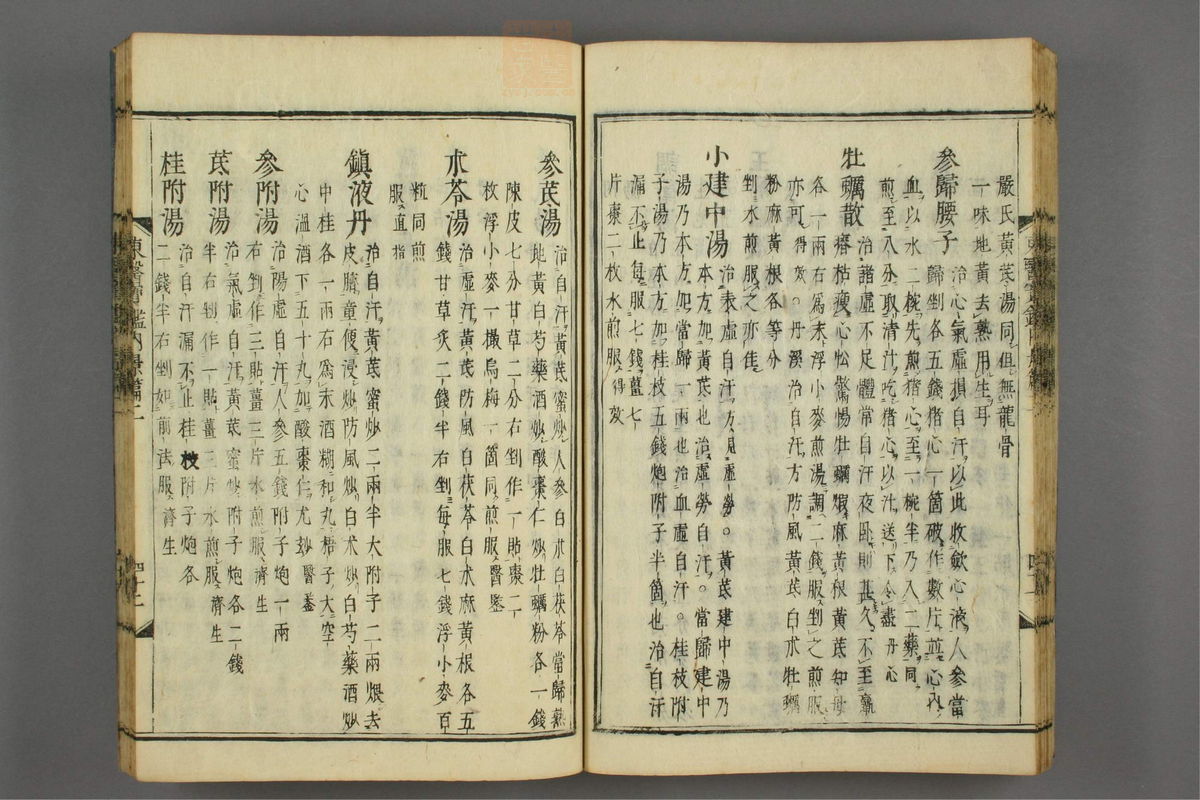 嚴氏黃芪湯同但無龍骨
一味地黃去熟用生耳
參歸腰子 治心氣虛損自汗以此收斂心液人參當
歸剉各五錢猪心一箇破作數片並心內
血以水二椀先煎猪心至一椀半乃入二藥同
煎至八分取清汁吃猪心以汁送下令盡 丹心
牡蠣散 治諸虛不足體常自汗夜臥則甚久不至羸
瘠枯瘦心忪驚惕牡蠣煅麻黃根黃芪知母
各一兩右爲末浮小麥煎湯調二錢服剉之煎服
亦可 得效 丹溪治自汗方防風黃芪白朮牡蠣
粉麻黃根各等分
剉水煎服之亦佳
小建中湯 治表虛自汗方見虛勞 黃芪建中湯乃
本方加黃芪也治虛勞自汗 當歸建中
湯乃本方加當歸一兩也治血虛自汗 桂枝附
子湯乃本方加桂枝五錢炮附子半箇也治自汗
漏不止每服七錢薑七
片棗二枚水煎服 得效
參芪湯 治自汗黃芪蜜炒人參白朮白茯苓當歸熟
地黃白芍藥酒炒酸棗仁炒牡蠣粉各一錢
陳皮七分甘草二分右剉作一貼棗二
枚浮小麥一撮烏梅一箇同煎服 醫鑒
朮苓湯 治虛汗黃芪防風白茯苓白朮麻黃根各五
錢甘草炙二錢半右剉每服七錢浮小麥百
粒同煎
服 直指
鎭液丹 治自汗黃芪蜜炒二兩半大附子二兩煨去
皮臍童便浸炒防風炒白朮炒白芍藥酒炒
中桂各一兩右爲末酒糊和丸梧子大空
心溫酒下五十丸加酸棗仁尤妙 醫鑒
參附湯 治陽虛自汗人參五錢附子炮一兩
右剉作三貼薑三片水煎服 濟生
芪附湯 治氣虛自汗黃芪蜜炒附子炮各二錢
半右剉作一貼薑三片水煎服 濟生
桂附湯 治自汗漏不止桂枝附子炮各
二錢半右剉如前法服 濟生
東醫寶鑑內景篇二
四十二